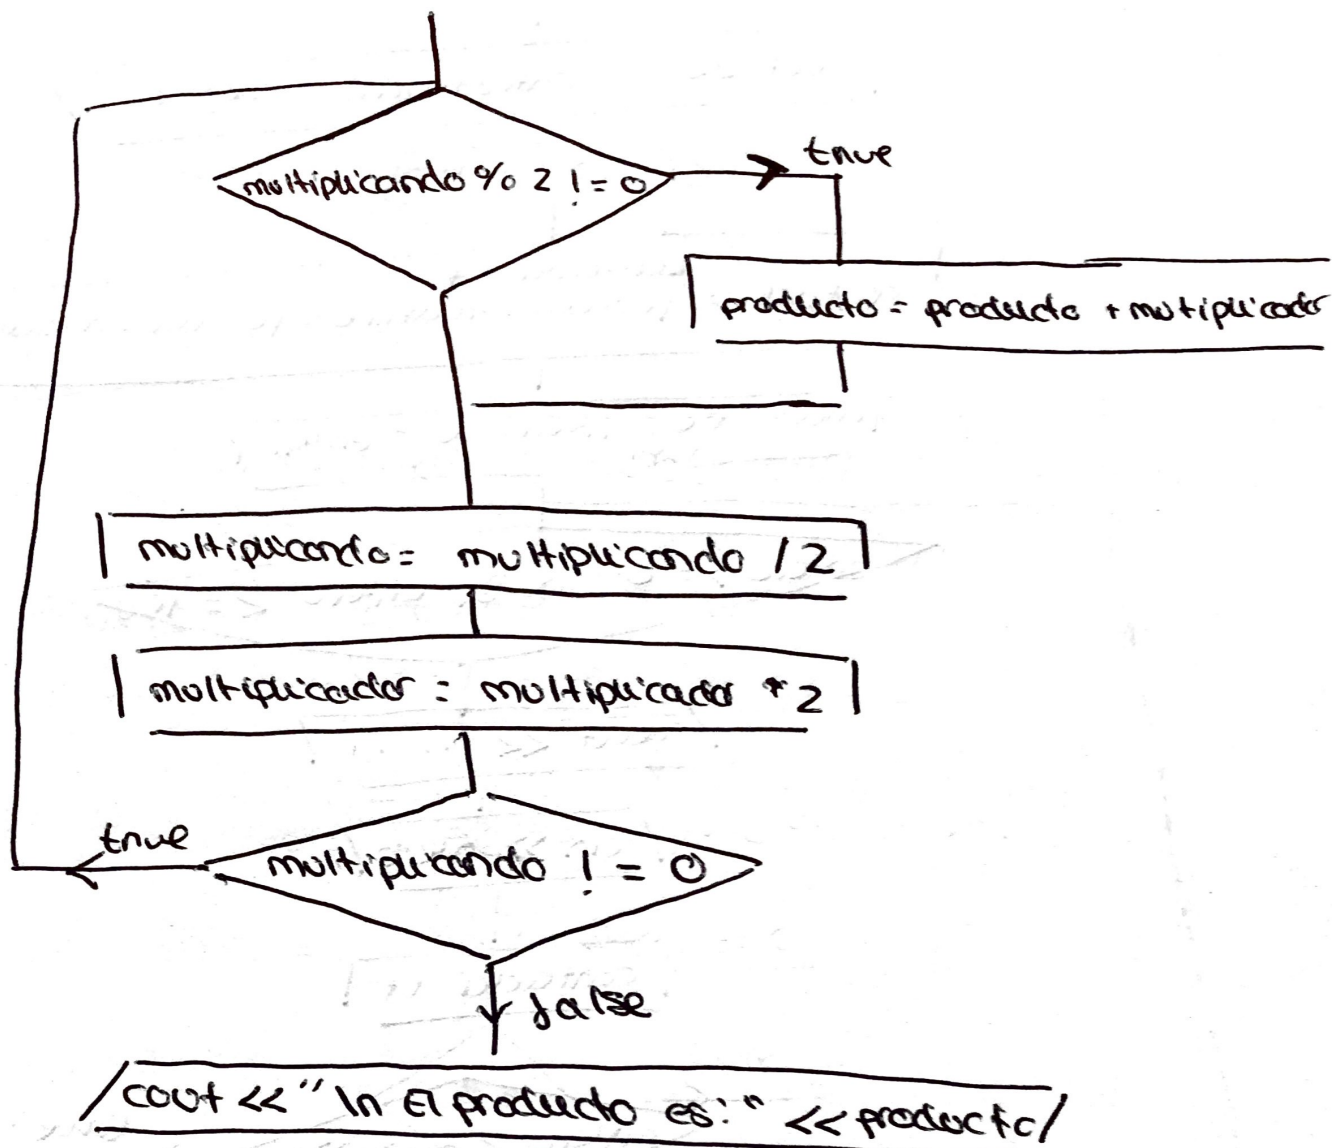 multiplicando % 2 != 0
true
producto = producto + mutiplicador
multiplicando = multiplicando / 2
multiplicador = multiplicador * 2
true
multiplicando != 0
false
cout << "\n El producto es:" << producto